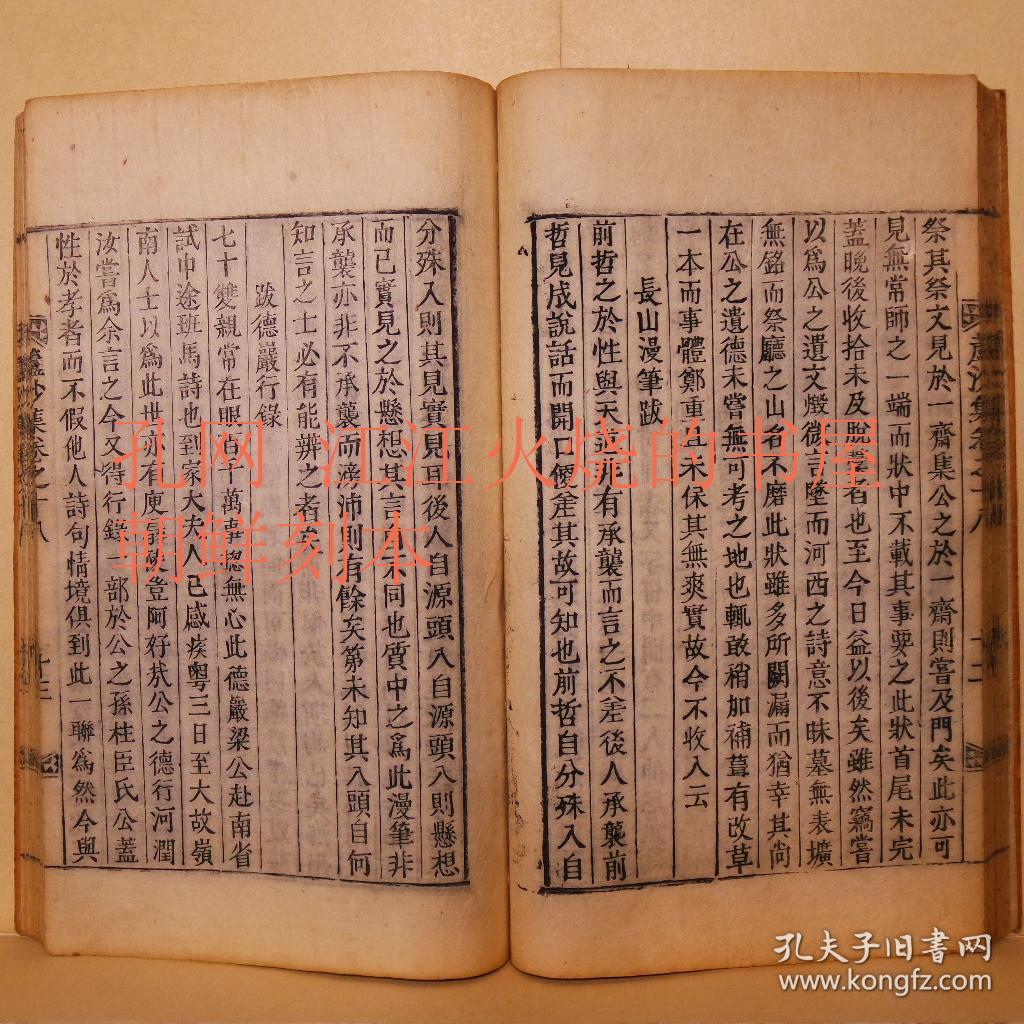 祭其祭文見於一齋集公之於一齋則嘗及門矣此亦可
見無常師之一端而狀中不載其事要之此狀首尾未完
蓋晚後收拾未及脫藁者也至今日益以後矣雖然竊嘗
以爲公之遺文燬微言墜而河西之詩意不昧墓無表壙
無銘而祭廳之山名不磨此狀雖多所闕漏而猶幸其尙
在公之遺德未嘗無可考之地也輒敢稍加補葺有改草
一本而事體鄭重且未保其無爽實故今不收入云
長山漫筆跋
前哲之於性與天道亦有承襲而言之不差後人承襲前
哲見成說話而開口便差其故可知也前哲自分殊入自
分殊入則其見實見耳後人自源頭入自源頭入則懸想
而已實見之於懸想其言
同也質中之爲此漫筆非
承襲亦非不承襲而滂沛則有餘矣第未知其入頭自何
知言之士必有能辨之者矣
跋德巖行錄
七十雙親常在眼百千萬事摠無心此德巖梁公赴南省
試中途班馬詩也到家大夫人已感疾粤三日至大故嶺
南人士以爲此世亦有庾
登阿好哉公之德行河潤
汝嘗爲余言之今又得行錄一部於公之孫柱臣氏公蓋
性於孝者而不假他人詩句情境俱到此一聯爲然今與
蘆沙集卷之十八
十二
蘆沙集卷之十八
十三
孔网 江江火烧的书屋
朝鲜刻本
孔夫子旧书网
www.kongfz.com